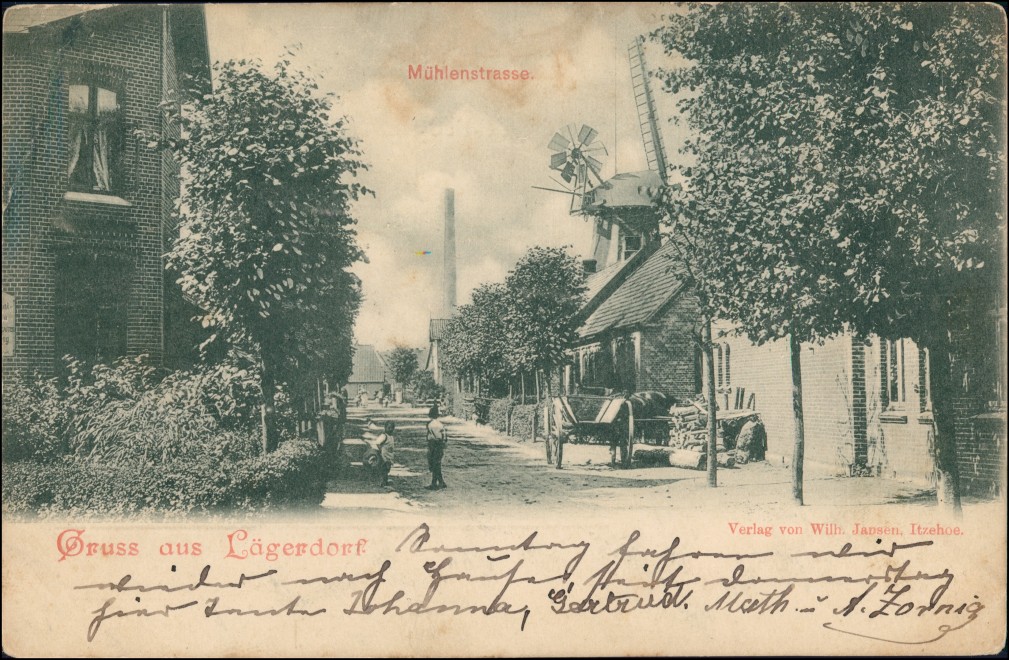 Mühlenstrasse.
Verlag von Wilh. Jansen, Itzehoe.
Gruss aus Lägerdorf.
Sonntag fahren wir
wieder nach Hause, seit Donnerstag
hier Tante Johanna, Gertrud. Math. u A. Zornig